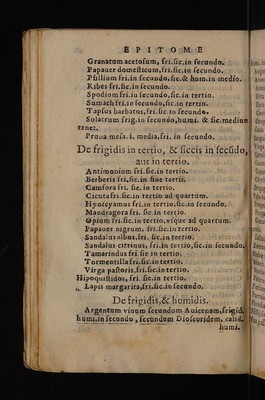 EPITOME
Granatum acetosum, fri.sic.in secundo.
Papauer domesticum, fri.sic.in secundo.
Psillium fri.in secundo, sic.& hum.in medio.
Ribes fri.sic.in secundo.
Spodium fri.in secundo, sic.in tertio.
Sumach fri.in secundo, sic.in tertio.
Tapsus barbatus, fri.sic.in secundo.
Solatrum frig.in secundo, humi. & sic.mediũ
tenet.
Pruna i. media, fri. in secundo.
De frigidis in tertio, & siccis in secũdo,
aut in tertio.
Antimonium fri.sic.in tertio.
Berberis fri.sic.in fine tertii.
Camfora fri. sic. in tertio.
Cicuta fri.sic.in tertio ad quartum.
Hyoscyamus fri.in tertio, sic.in secundo.
Mandragora fri. sic. in tertio.
Opium fri.sic.in tertio, vsque ad quartum.
Papauer nigrum, fri.sic.in tertio.
Sandalus albus, fri. sic.in tertio.
Sandalus citrinus, fri. in tertio, sic.in secundo.
Tamarindus fri sic in tertio.
Tormentilla fri.sic.in tertio.
Virga pastoris, fri.sic.in tertio.
Hipoquistidos, fri. sic.in tertio.
Lapis margarita, fri.sic.in secundo.
De frigidis, & humidis.
Argentum viuum secundum Auicennam, frigid.
humi.in secundo, secundum Dioscoridem, calid.
humi.